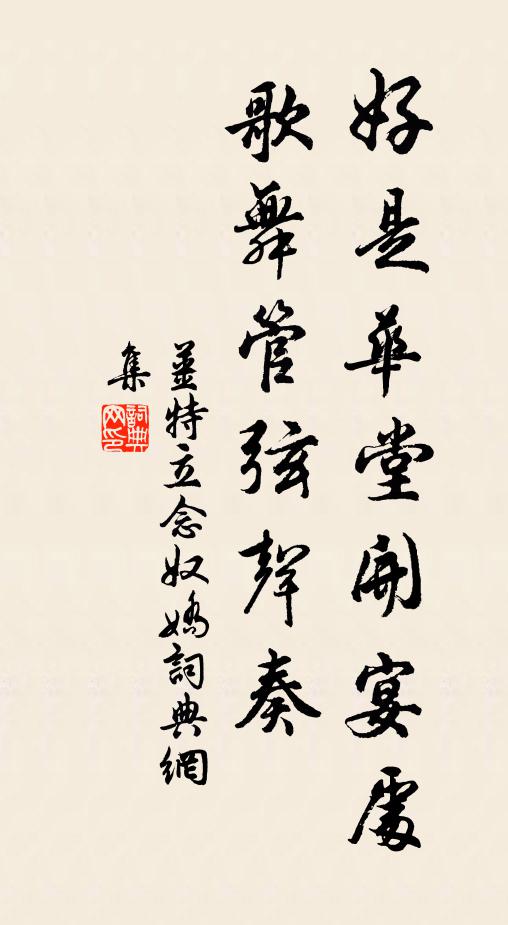 好是華堂開宴處
歌舞管弦聲奏
姜特立念奴嬌詞典網
集
詞典
网印